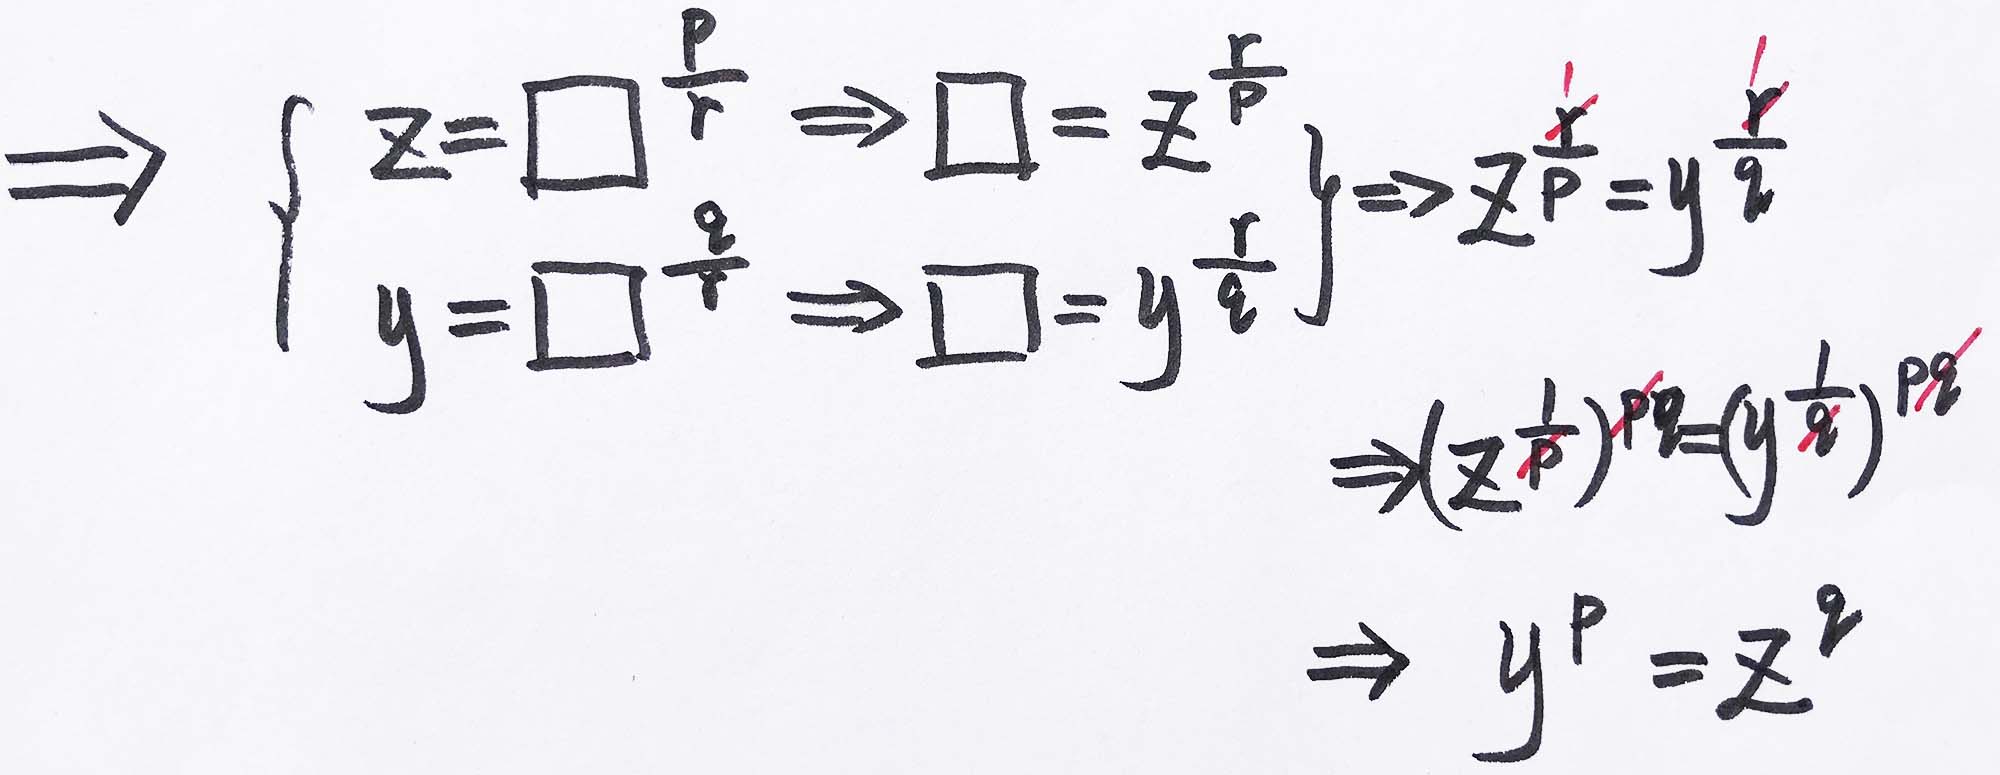 ⇒ { z = □^(p/r) ⇒ □ = z^(r/p) } ⇒ z^(r/p) = y^(r/q)
y = □^(q/r) ⇒ □ = y^(r/q)
⇒ (z^(1/p))^(pq) = (y^(1/q))^(pq)
⇒ y^p = z^q